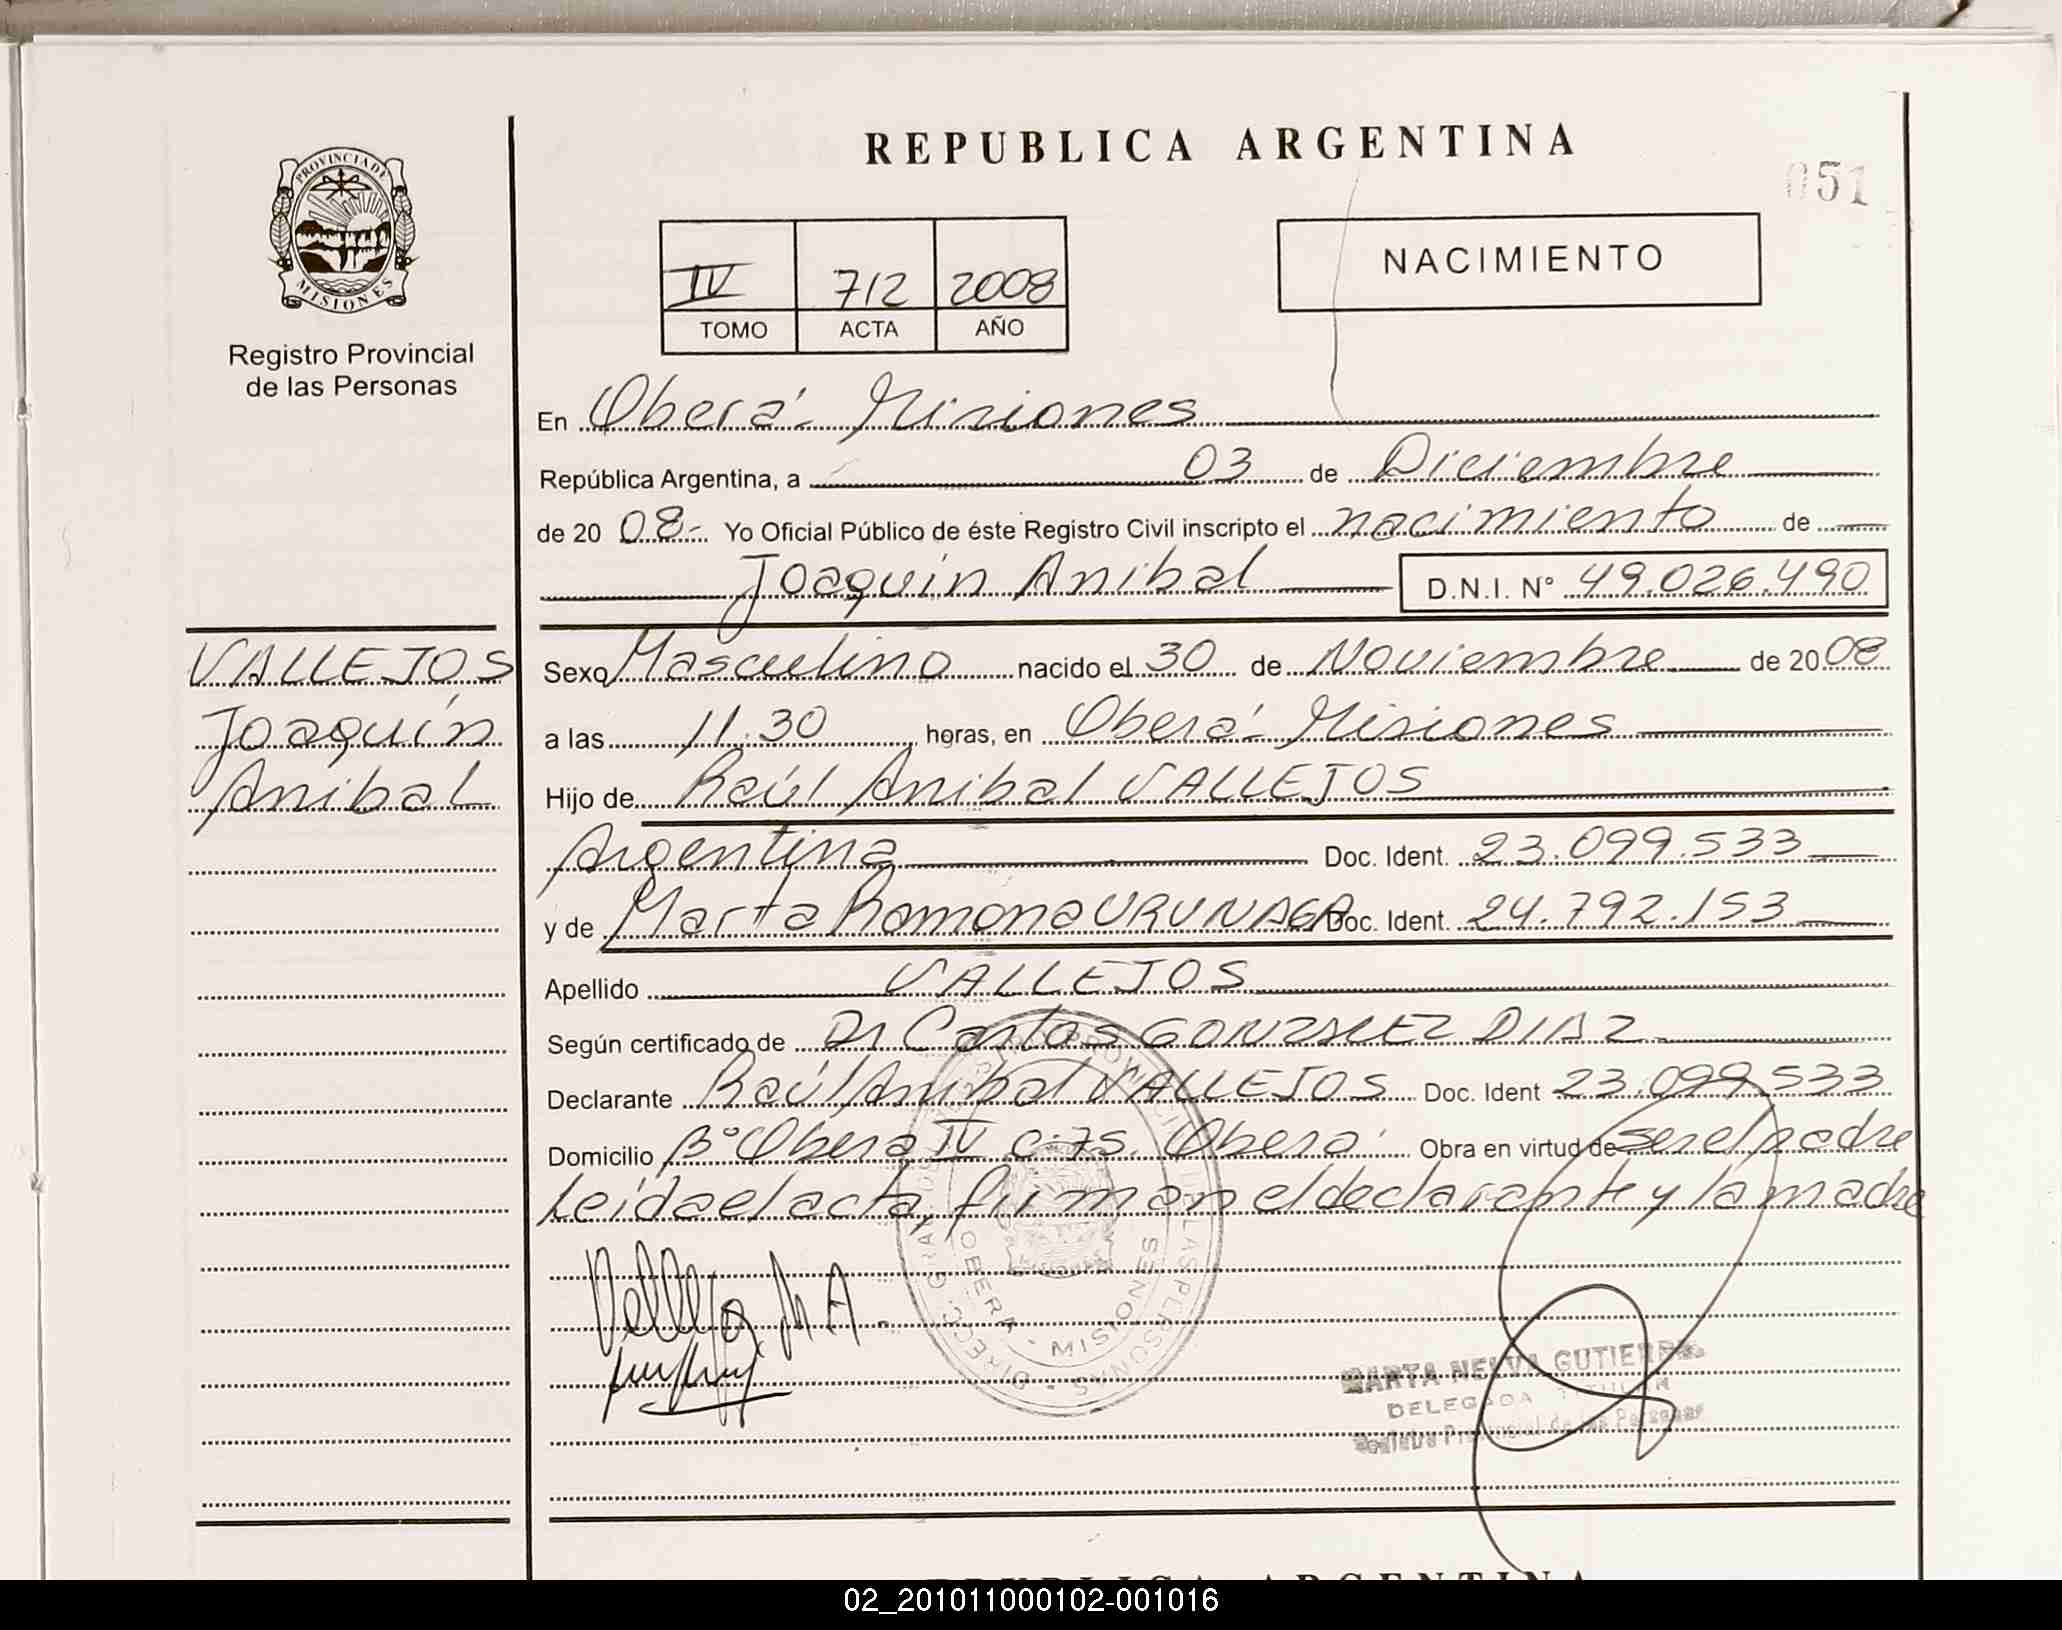 REPUBLICA ARGENTINA
051
PROVINCIA DE
MISIONES
Registro Provincial
de las Personas
IV 712 2008
TOMO ACTA AÑO
NACIMIENTO
En Oberá - Misiones
República Argentina, a 03 de Diciembre
de 20 08.- Yo Oficial Público de éste Registro Civil inscripto el nacimiento de
Joaquín Anibal D.N.I. N° 49.026.490
VALLEJOS
Joaquín
Anibal
Sexo Masculino nacido el 30 de Noviembre de 20 08
a las 11.30 horas, en Oberá - Misiones
Hijo de Raúl Anibal VALLEJOS
Argentina Doc. Ident. 23.099.533
y de Marta Ramona URUNAGA Doc. Ident. 24.792.153
Apellido VALLEJOS
Según certificado de Dr Carlos GONZALEZ DIAZ
Declarante Raúl Anibal VALLEJOS Doc. Ident 23.099.533
Domicilio B° Oberá IV C.75. Oberá Obra en virtud de ser el padre
Leída el acta, firman el declarante y la madre
OBERA - MISIONES
MARTA NELVA GUTIERREZ
DELEGADA TITULAR
Registro Provincial de las Personas
REPUBLICA ARGENTINA
02_201011000102-001016